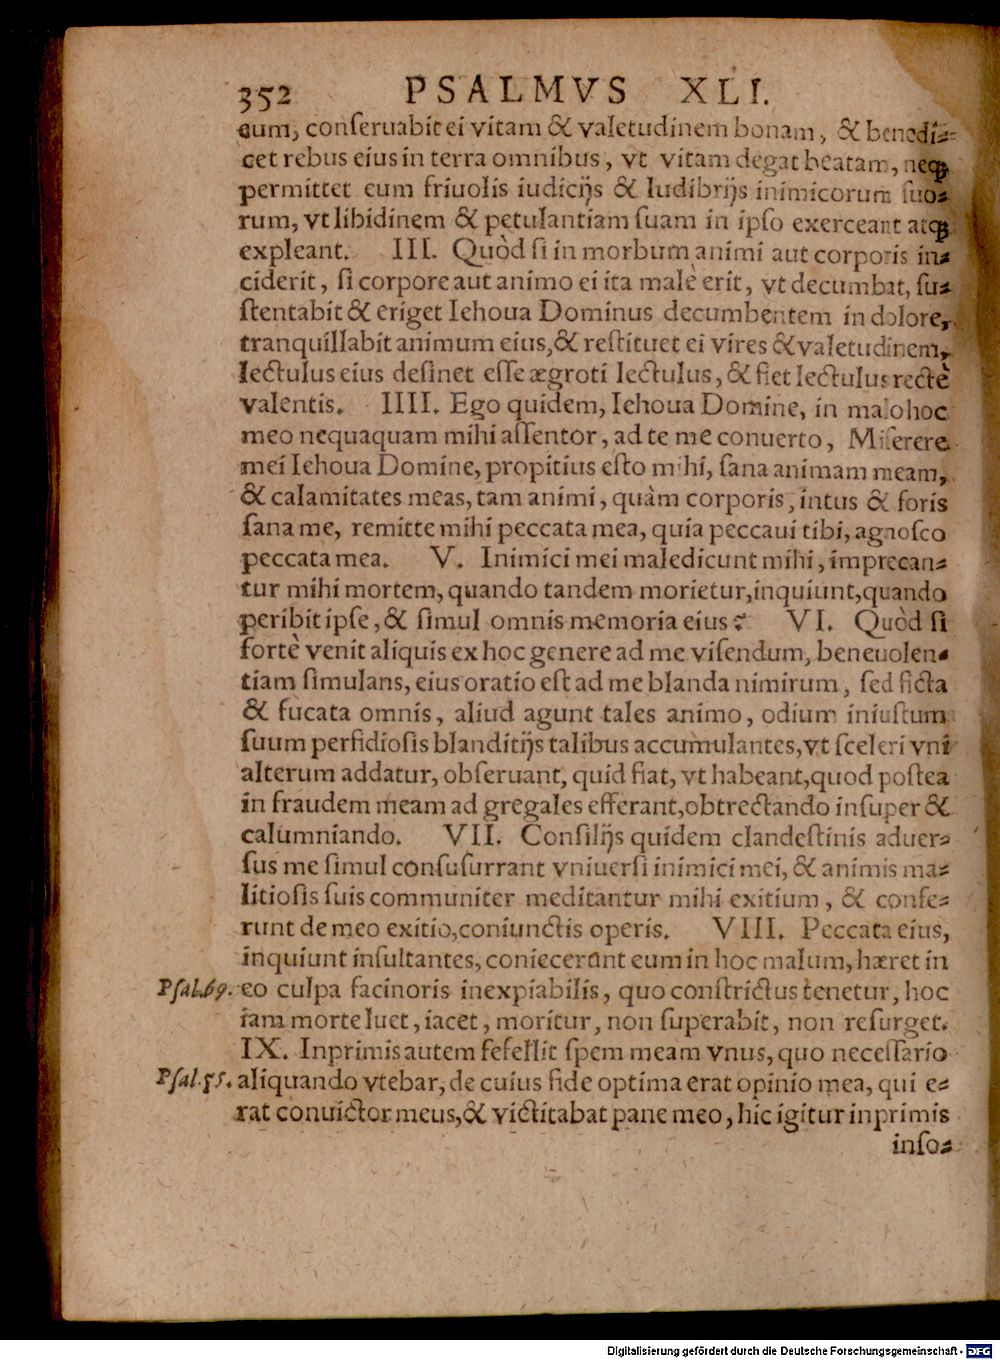 352 PSALMVS XLI.
eum, conſeruabit ei vitam & valetudinem bonam, & benedi-
cet rebus eius in terra omnibus, vt vitam degat beatam, neqꝫ
permittet eum friuolis iudicijs & ludibrijs inimicorum ſuo-
rum, vt libidinem & petulantiam ſuam in ipſo exerceant atqꝫ
expleant. III. Quòd ſi in morbum animi aut corporis in-
ciderit, ſi corpore aut animo ei ita malè erit, vt decumbat, ſu-
ſtentabit & eriget Iehoua Dominus decumbentem in dolore,
tranquillabit animum eius, & reſtituet ei vires & valetudinem,
lectulus eius deſinet eſſe ægroti lectulus, & fiet lectulus rectè
valentis. IIII. Ego quidem, Iehoua Domine, in malo hoc
meo nequaquam mihi aſſentor, ad te me conuerto, Miſerere
mei Iehoua Domine, propitius eſto mihi, ſana animam meam,
& calamitates meas, tam animi, quàm corporis, intus & foris
ſana me, remitte mihi peccata mea, quia peccaui tibi, agnoſco
peccata mea. V. Inimici mei maledicunt mihi, imprecan-
tur mihi mortem, quando tandem morietur, inquiunt, quando
peribit ipſe, & ſimul omnis memoria eius? VI. Quòd ſi
fortè venit aliquis ex hoc genere ad me viſendum, beneuolen-
tiam ſimulans, eius oratio eſt ad me blanda nimirum, ſed ficta
& fucata omnis, aliud agunt tales animo, odium iniuſtum
ſuum perfidioſis blanditijs talibus accumulantes, vt ſceleri vni
alterum addatur, obſeruant, quid fiat, vt habeant, quod poſtea
in fraudem meam ad gregales efferant, obtrectando inſuper &
calumniando. VII. Conſilijs quidem clandeſtinis aduer-
ſus me ſimul conſuſurrant vniuerſi inimici mei, & animis ma-
litioſis ſuis communiter meditantur mihi exitium, & confe-
runt de meo exitio, coniunctis operis. VIII. Peccata eius,
inquiunt inſultantes, coniecerunt eum in hoc malum, hæret in
Pſal. 69. eo culpa facinoris inexpiabilis, quo conſtrictus tenetur, hoc
iam morte luet, iacet, moritur, non ſuperabit, non reſurget.
IX. Inprimis autem fefellit ſpem meam vnus, quo neceſſario
Pſal. 55. aliquando vtebar, de cuius fide optima erat opinio mea, qui e-
rat conuictor meus, & victitabat pane meo, hic igitur inprimis
inſo-
Digitalisierung gefördert durch die Deutsche Forschungsgemeinschaft - DFG